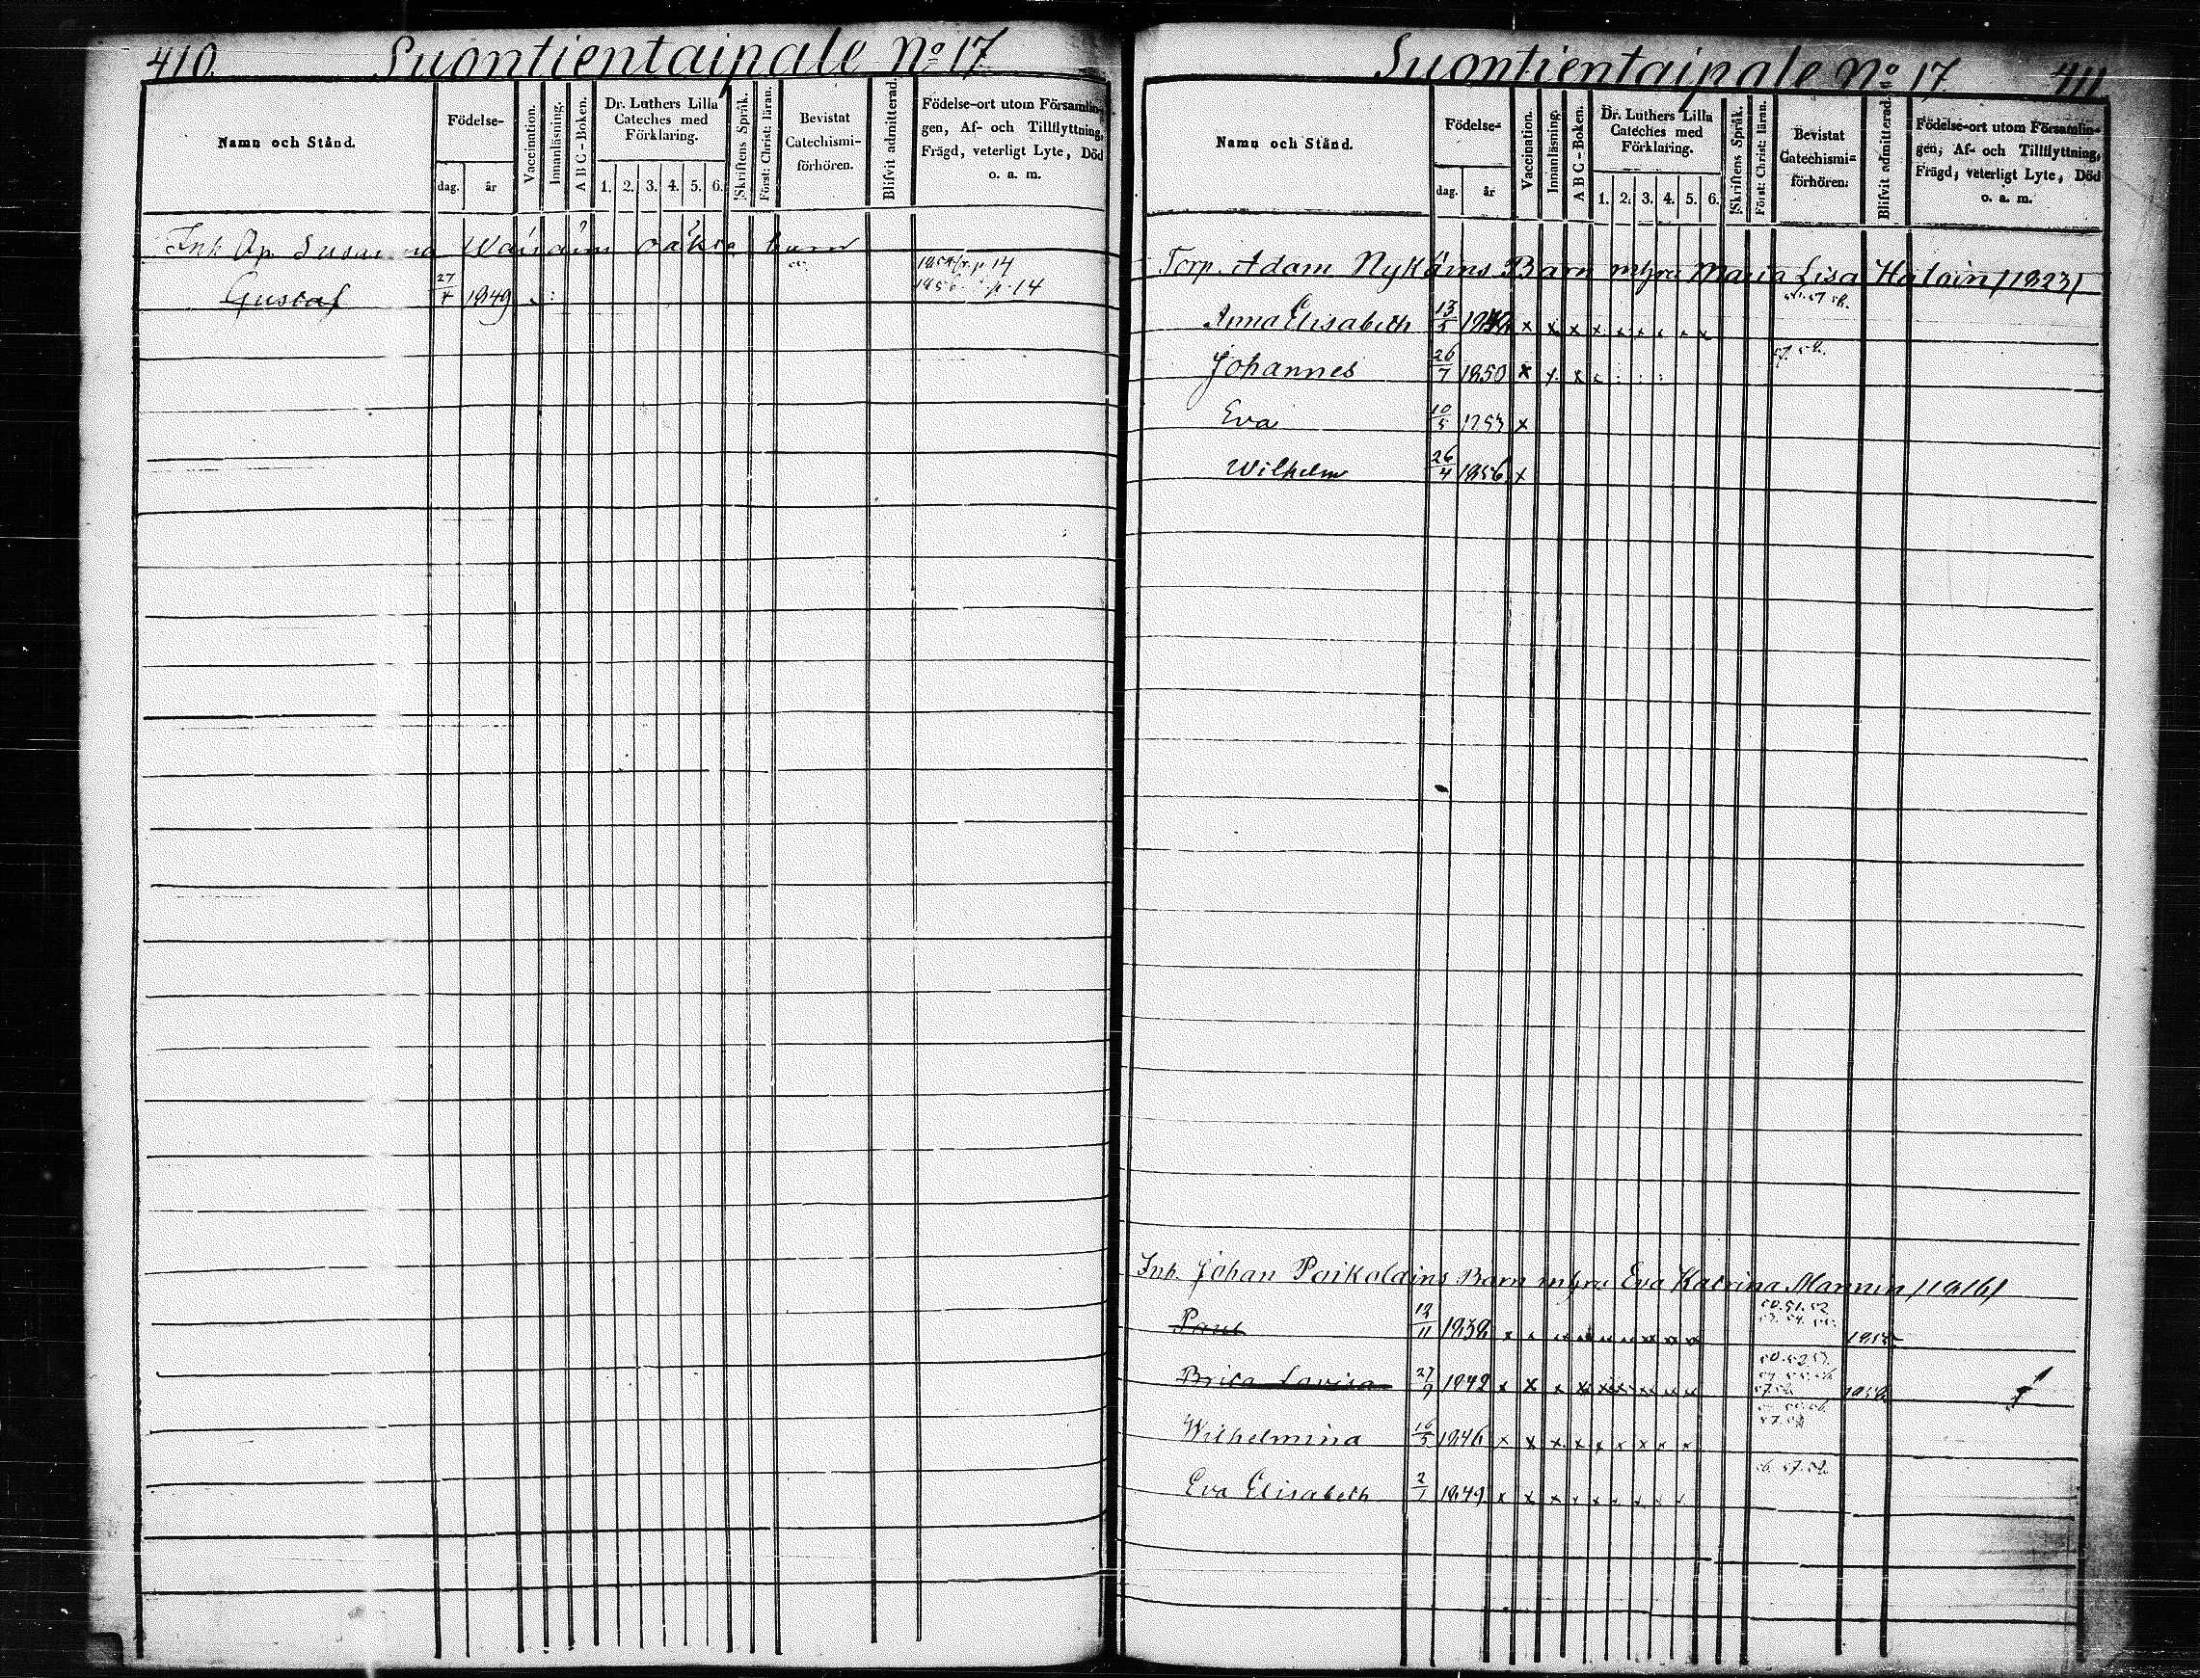 410. Suontientaipale No 17
Namn och Stånd.
Födelse-
dag. år
Vaccination.
Innanläsning.
A B C - Boken.
Dr. Luthers Lilla
Cateches med
Förklaring.
1. 2. 3. 4. 5. 6.
Skriftens Språk.
Först: Christ: läran.
Bevistat
Catechismi-
förhören.
Blifvit admitterad.
Födelse-ort utom Församlin-
gen, Af- och Tillflyttning,
Frägd, veterligt Lyte, Död
o. a. m.
Inh.
Gustaf 27/4 1849
Suontientaipale No 17 411
Namn och Stånd.
Födelse-
dag. år
Vaccination.
Innanläsning.
A B C - Boken.
Dr. Luthers Lilla
Cateches med
Förklaring.
1. 2. 3. 4. 5. 6.
Skriftens Språk.
Först: Christ: läran.
Bevistat
Catechismi-
förhören.
Blifvit admitterad.
Födelse-ort utom Församlin-
gen, Af- och Tillflyttning,
Frägd, veterligt Lyte, Död
o. a. m.
Torp. Adam Nykäins Barn m hru Maria Lisa Haloin /1823/
Anna Elisabeth 13/5 x x x x x x x x x
Johannes 26/7 1850 x x x 57. 58.
Eva 10/5 1853 x
Wilhelm 26/4 1856 x
Inh. Johan Paikolains Barn m hru Eva Katrina Mannin /1816/
Paul 12/11 1838 x x x x x x x x x 50. 51. 52.
Brita Lovisa 27/9 1842 x x x x x x x x x 1858
Wilhelmina 16/5 1846 x x x x x x x x x
Eva Elisabeth 2/1 1849 x x x x x x x x x 56. 57. 58.